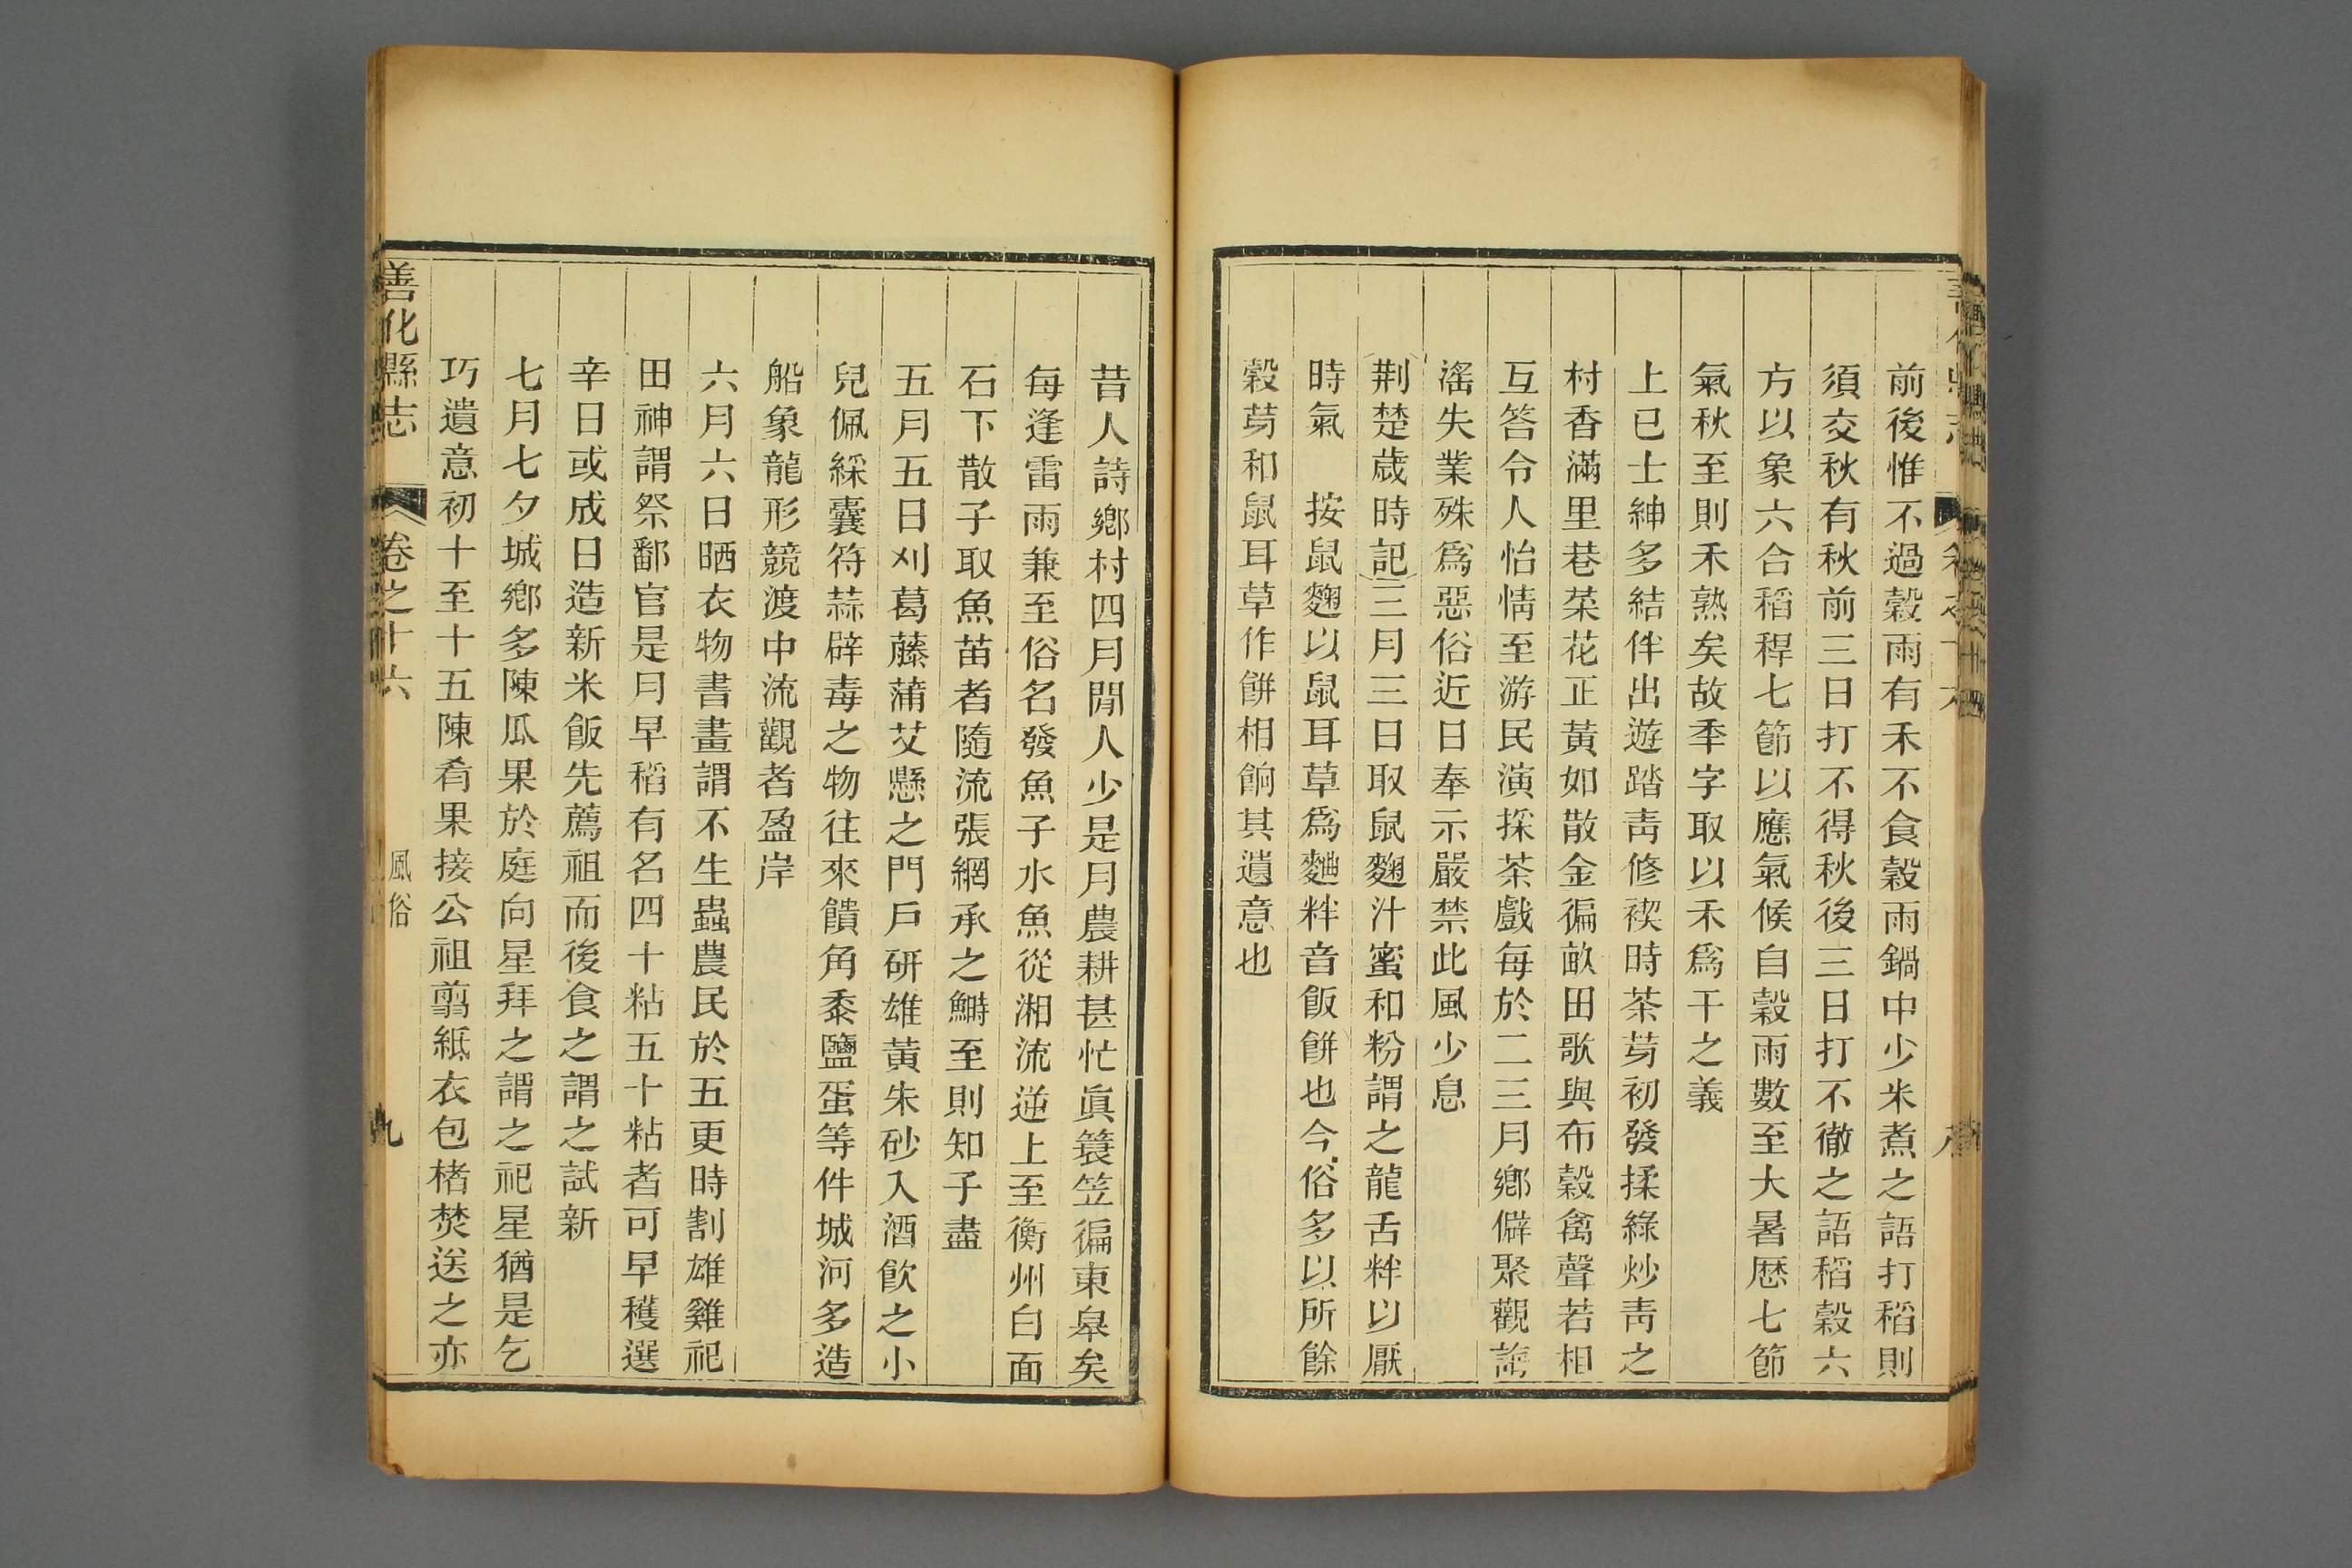 前後惟不過穀雨有禾不食穀雨鍋中少米煮之語打稻則
須交秋有秋前三日打不得秋後三日打不徹之語稻穀六
方以象六合稻稈七節以應氣候自穀雨數至大暑歷七節
氣秋至則禾熟矣故季字取以禾爲干之義
上巳士紳多結伴出遊踏靑修禊時茶芽初發揉綠炒靑之
村香滿里巷菜花正黃如散金徧畝田歌與布穀禽聲若相
互答令人怡情至游民演採茶戲每於二三月鄉僻聚觀誨
滛失業殊爲惡俗近日奉示嚴禁此風少息
荆楚歲時記三月三日取鼠麴汁蜜和粉謂之龍舌䉽以厭
時氣　按鼠麴以鼠耳草爲麯䉽音飯餠也今俗多以所餘
穀芽和鼠耳草作餠相餉其遺意也
昔人詩鄉村四月閒人少是月農耕甚忙眞簑笠徧東皋矣
每逢雷雨兼至俗名發魚子水魚從湘流逆上至衡州白面
石下散子取魚苗者隨流張網承之鰣至則知子盡
五月五日刈葛藤蒲艾懸之門戶研雄黃朱砂入酒飮之小
兒佩綵囊符蒜辟毒之物往來饋角黍鹽蛋等件城河多造
船象龍形競渡中流觀者盈岸
六月六日晒衣物書畫謂不生蟲農民於五更時割雄雞祀
田神謂祭鄱官是月早稻有名四十粘五十粘者可早穫選
辛日或成日造新米飯先薦祖而後食之謂之試新
七月七夕城鄉多陳瓜果於庭向星拜之謂之祀星猶是乞
巧遺意初十至十五陳肴果接公祖翦紙衣包楮焚送之亦
善化縣志　卷之十六　風俗　九